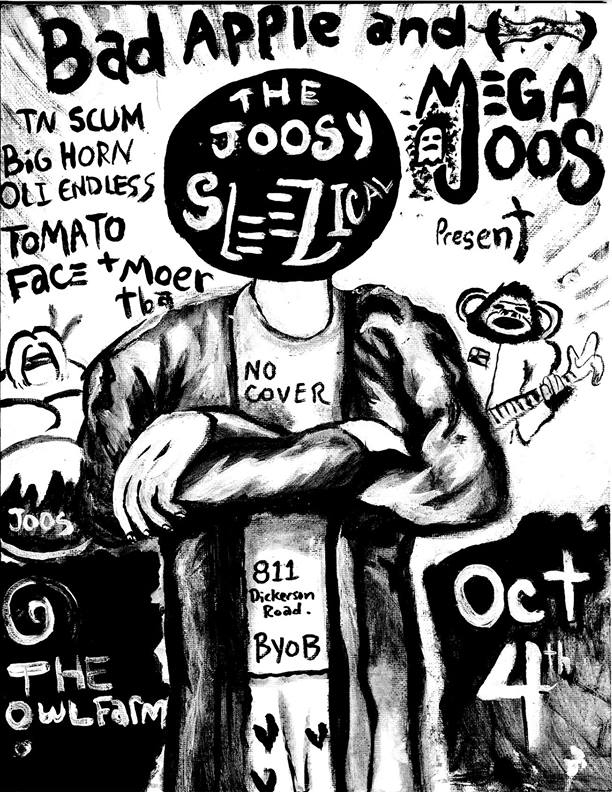 Bad Apple and
MEGA
JOOS
Present
THE
JOOSY
SLEEZICAL
TN SCUM
BiG HORN
OLI ENDLESS
TOMATO
FACE + Moer
tba
NO
COVER
JOOS
811
Dickerson
Road.
BYOB
THE
OWLFarM
Oct
4th